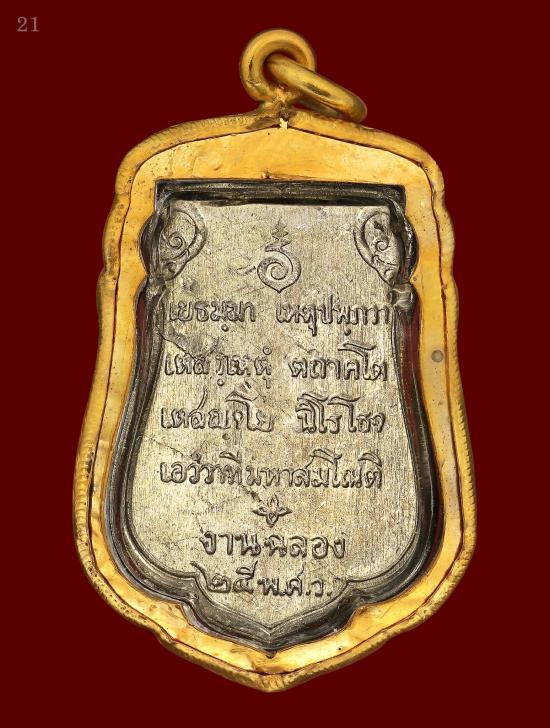 21
เยธมฺมา เหตุปพฺภวา
เตสํเหตุํ ตถาคโต
เตสญฺจโย นิโรโธจ
เอวํวาทีมหาสมโณติ
งานฉลอง
๒๕ พ.ศ.ว.